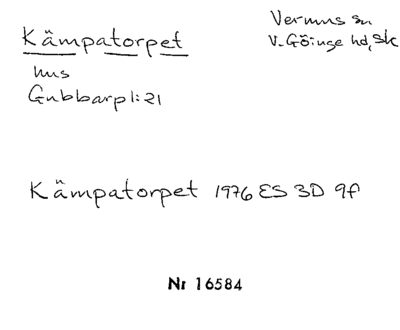 Kämpatorpet
hus
Gubbarp 1:21
Vermuns sn
V. Göinge hd, Sk
Kämpatorpet 1976 ES 3D 9f
Nr 16584